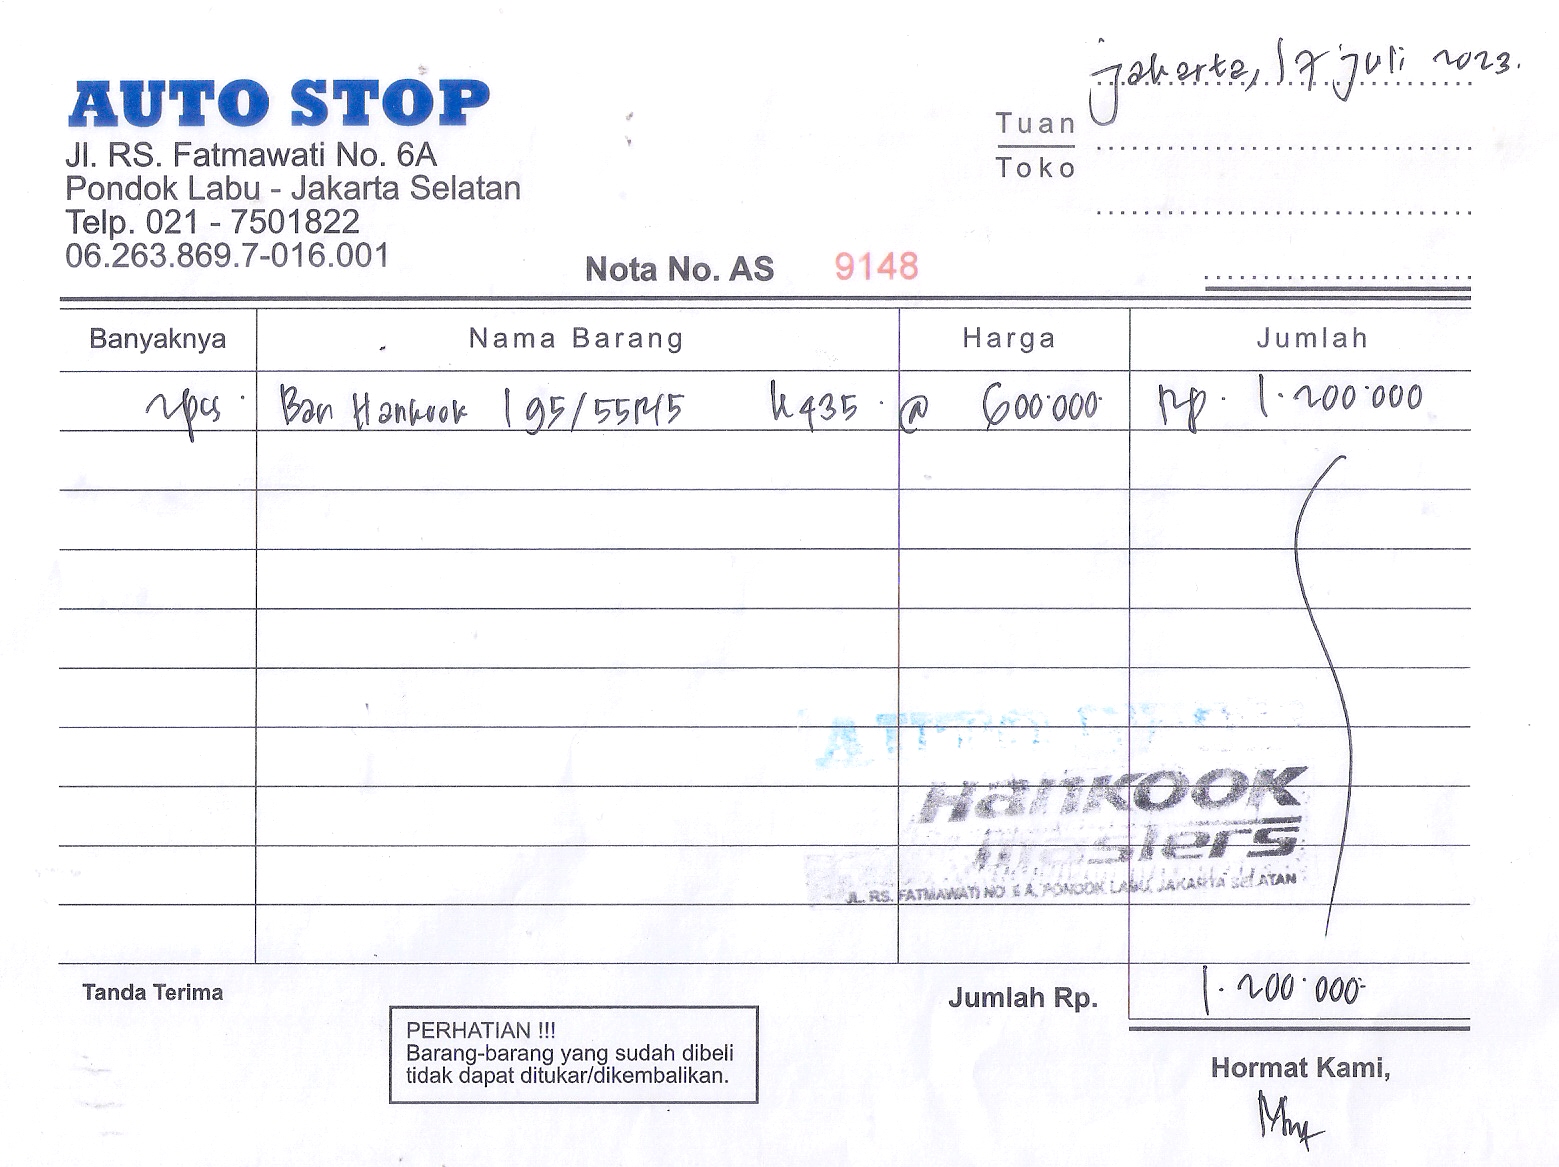 jakarta, 17 juli 2023.
AUTO STOP
Jl. RS. Fatmawati No. 6A
Pondok Labu - Jakarta Selatan
Telp. 021 - 7501822
06.263.869.7-016.001
Tuan
Toko
Nota No. AS 9148
Banyaknya Nama Barang Harga Jumlah
2pcs Ban Hankook 195/55R15 K435 @ 600.000 Rp. 1.200.000
HanKOOK
masters
JL. RS. FATMAWATI NO 6 A, PONDOK LABU, JAKARTA SELATAN
Tanda Terima
Jumlah Rp. 1.200.000
PERHATIAN !!!
Barang-barang yang sudah dibeli
tidak dapat ditukar/dikembalikan.
Hormat Kami,